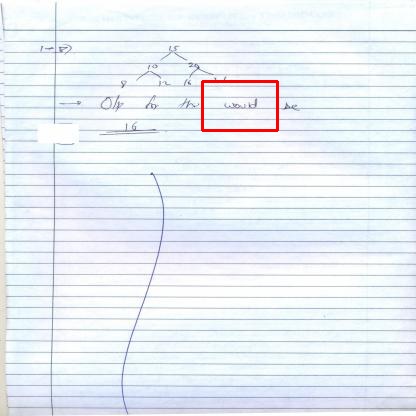 15
10 20
8 12 16
→ O/p for the would be
16